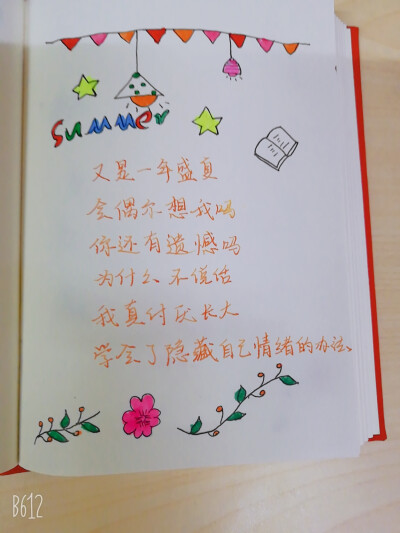 Summer
又是一年盛夏
会偶尔想我吗
你还有遗憾吗
为什么不说话
我真讨厌长大
学会了隐藏自己情绪的办法
B612